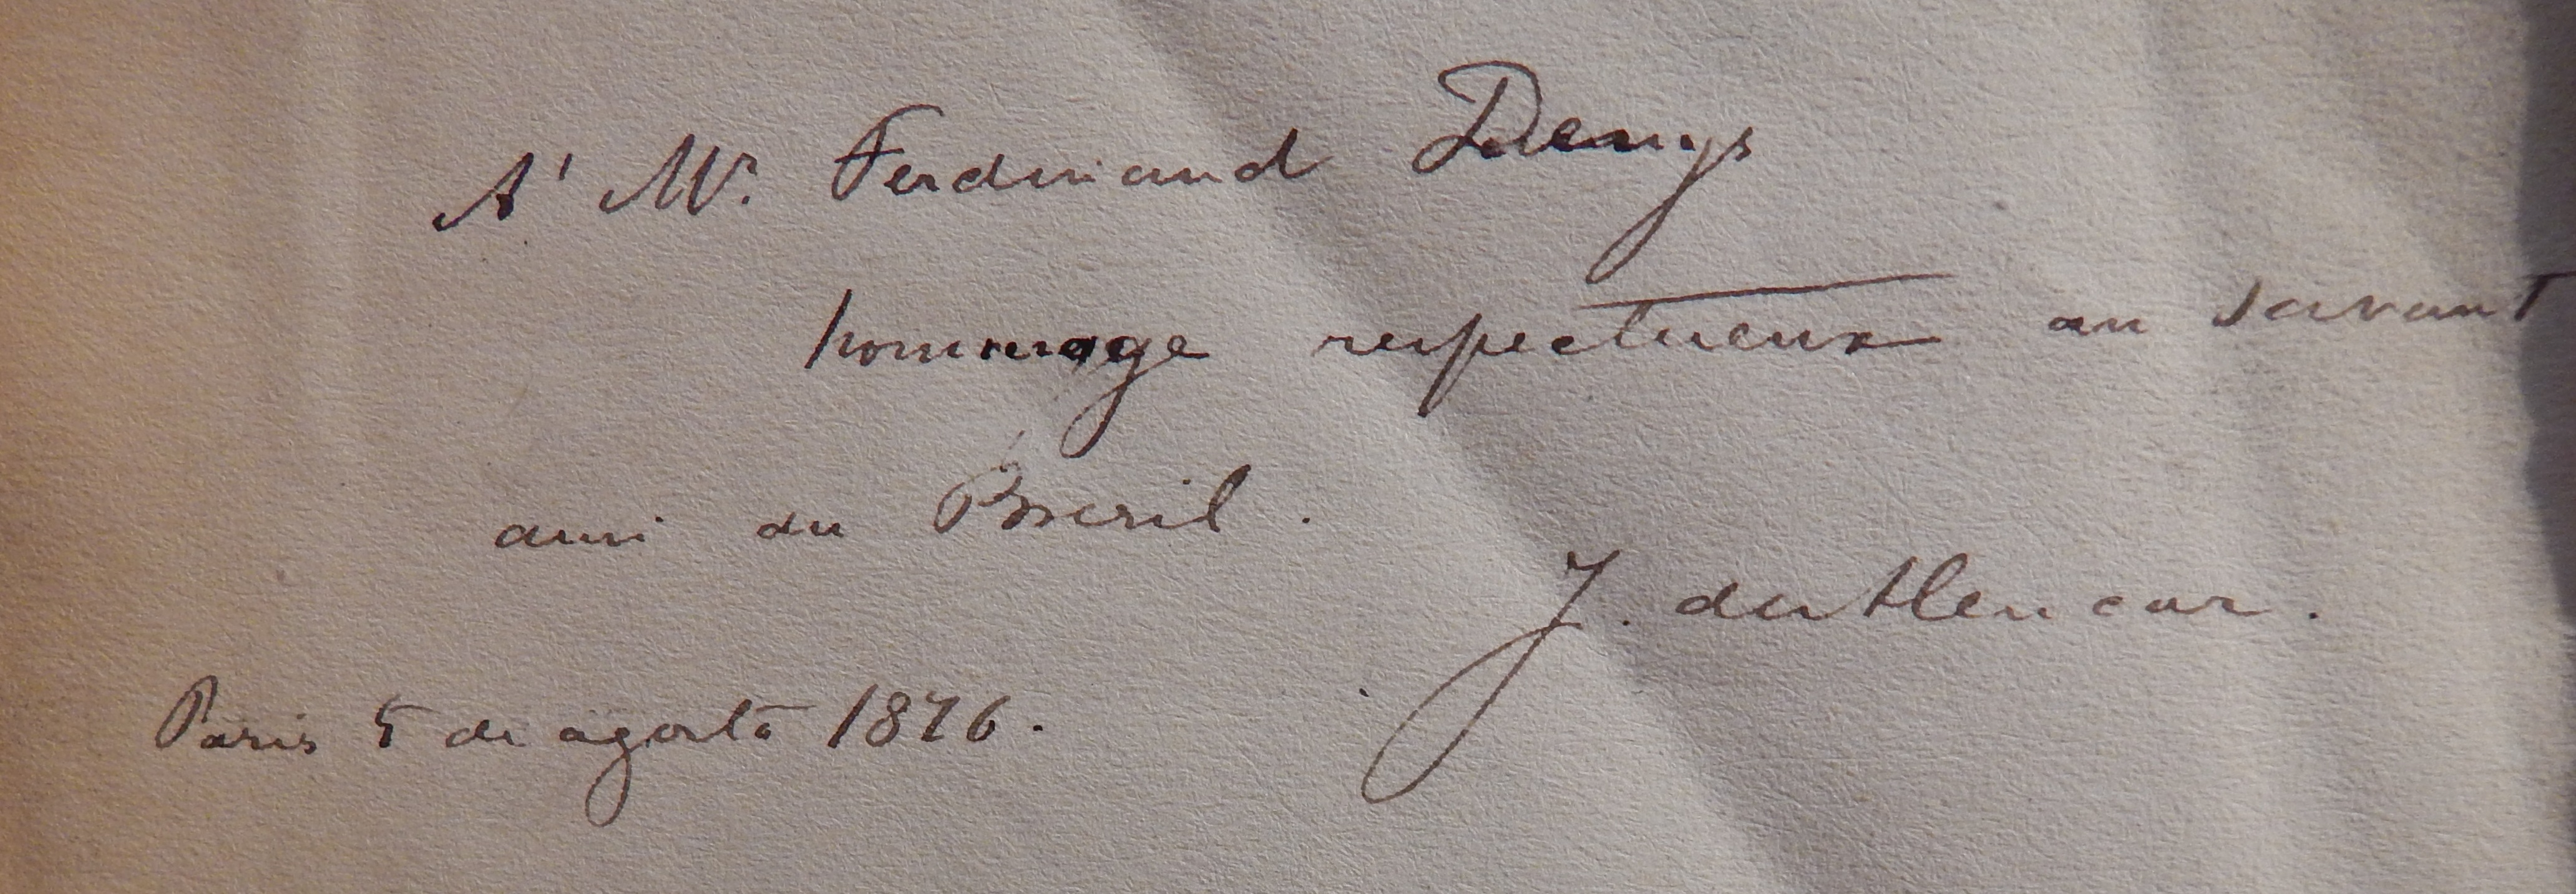 A' Mr. Ferdinand Denys
hommage respectueux au savant
ami du Bresil.
J. de Alencar.
Paris 5 de agosto 1876.